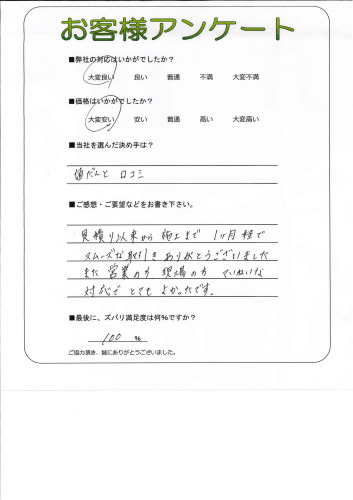 お客様アンケート
■弊社の対応はいかがでしたか?
大変良い 良い 普通 不満 大変不満
■価格はいかがでしたか?
大変安い 安い 普通 高い 大変高い
■当社を選んだ決め手は?
値だんと 口コミ
■ご感想・ご要望などをお書き下さい。
見積り以来から 施工まで 1ヶ月程で
スムーズな取引き ありがとうございました
また 営業の方 現場の方 ていねいな
対応で とても よかったです。
■最後に、ズバリ満足度は何%ですか?
100 %
ご協力頂き、誠にありがとうございました。